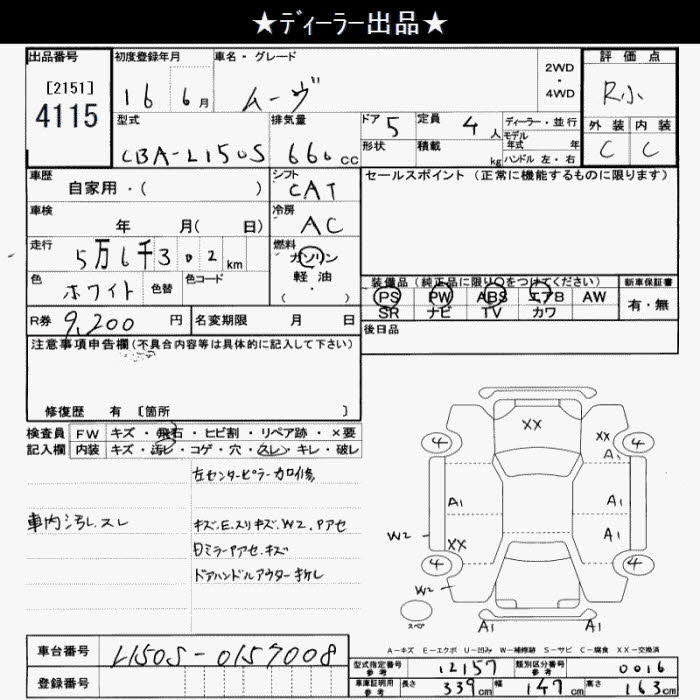 ★ディーラー出品★
出品番号
[2151]
4115
初度登録年月
16 6月
車名・グレード
ムーヴ
2WD
・
4WD
評価点
R小
外装 内装
C C
型式
CBA-L150S
排気量
660 cc
ドア 5
形状
定員 4 人
積載 kg
ディーラー・並行
モデル
年式 年
ハンドル 左・右
車歴
自家用・( )
シフト
CAT
セールスポイント(正常に機能するものに限ります)
車検
年 月( 日)
冷房
AC
走行
5万6千302km
燃料
ガソリン
軽油
( )
色
ホワイト
色替
色コード
R券 9,200 円
名変期限 月 日
装備品(純正品に限り○をつけてください)
PS PW ABS エアB AW
SR ナビ TV カワ
新車保証書
有・無
後日品
注意事項申告欄(不具合内容等は具体的に記入して下さい)
修復歴 有 [箇所 ]
検査員
記入欄
FW キズ・飛石・ヒビ割・リペア跡・×要
内装 キズ・汚レ・コゲ・穴・スレ・キレ・破レ
左センターピラー加修
車内汚レ、スレ
キズ、E、スリキズ、W2、Pアセ
日ミラーPアセ、キズ
ドアハンドルアウターキケレ
XX
4
XX
A1
4
A1
A1
W2
XX
A1
4
4
W2
スペア
A1
A1
A-キズ E-エクボ U-凹み W-補修跡 S-サビ C-腐食 XX-交換済
車台番号 L150S-0157008
登録番号
型式指定番号
参考
12157
類別区分番号
参考
0016
車庫証明用
参考
長さ 339cm 幅 147cm 高さ 163cm